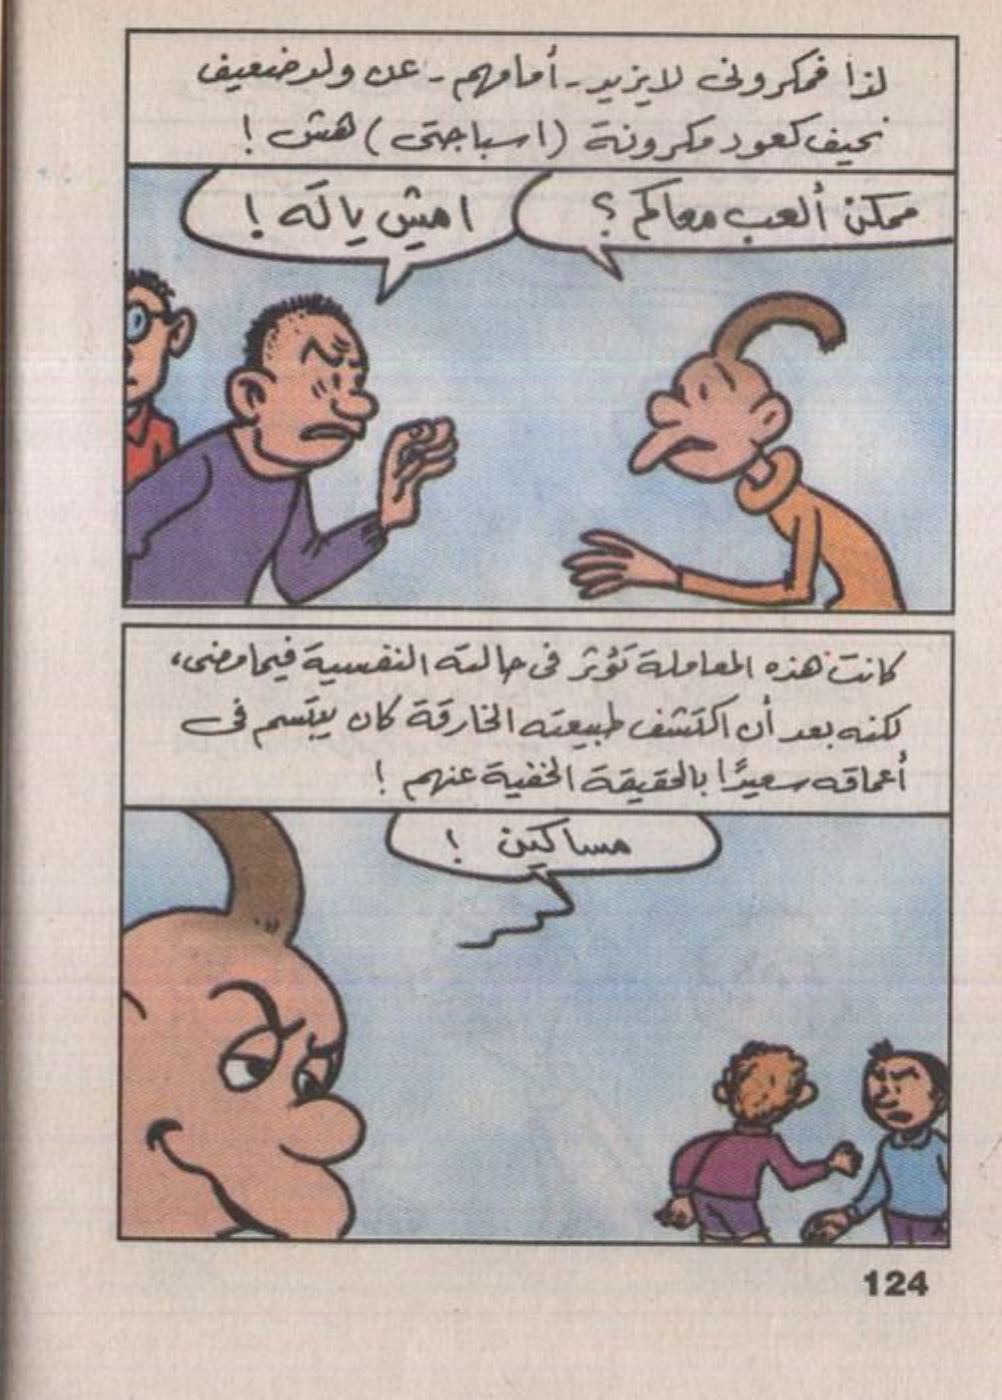 لذا فمكرونى لا يزيد - أمامهم - عن ولد ضعيف
نحيف كعود مكرونة (اسباجتى) هش !
ممكن ألعب معاكم ؟
امشى يا له !
كانت هذه المعاملة تؤثر فى حالته النفسية فيما مضى،
لكنه بعد أن اكتشف طبيعته الخارقة كان يبتسم فى
أعماقه سعيدًا بالحقيقة الخفية عنهم !
مساكين !
124